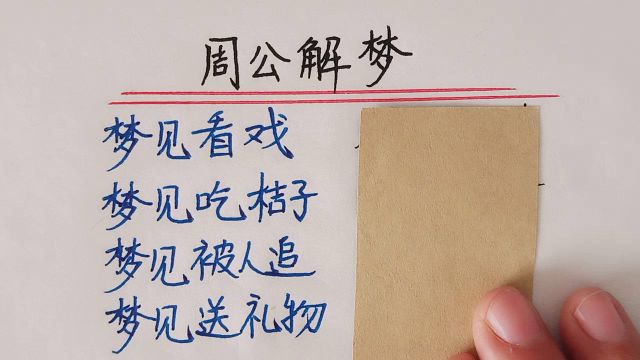 周公解梦
梦见看戏
梦见吃桔子
梦见被人追
梦见送礼物